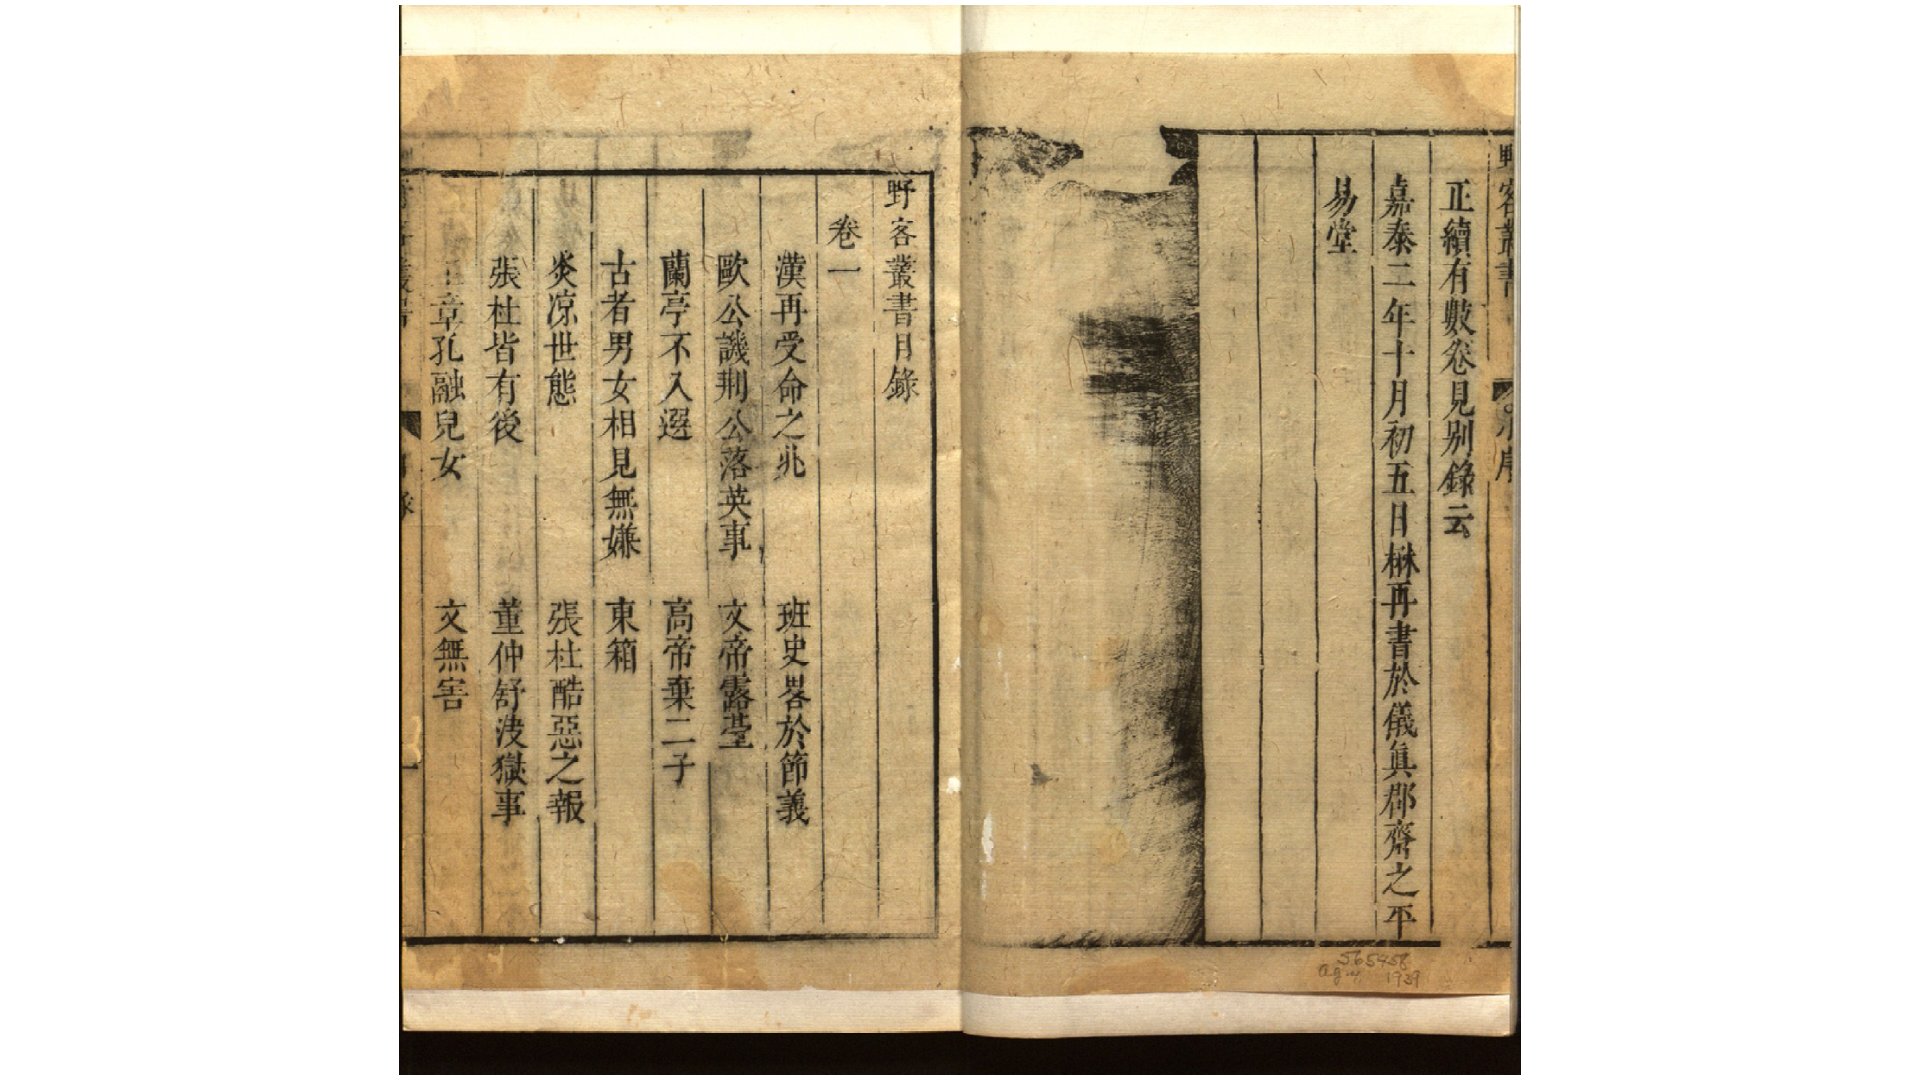 野客叢書
小序
正續有數卷見别錄云
嘉泰二年十月初五日楙再書於儀眞郡齋之平
易堂
565458
1939
野客叢書目錄
卷一
漢再受命之兆　班史畧於節義
歐公譏荆公落英事　文帝露臺
蘭亭不入選　高帝棄二子
古者男女相見無嫌　東箱
炎凉世態　張杜酷惡之報
張杜皆有後　董仲舒決獄事
王章孔融兒女　文無害